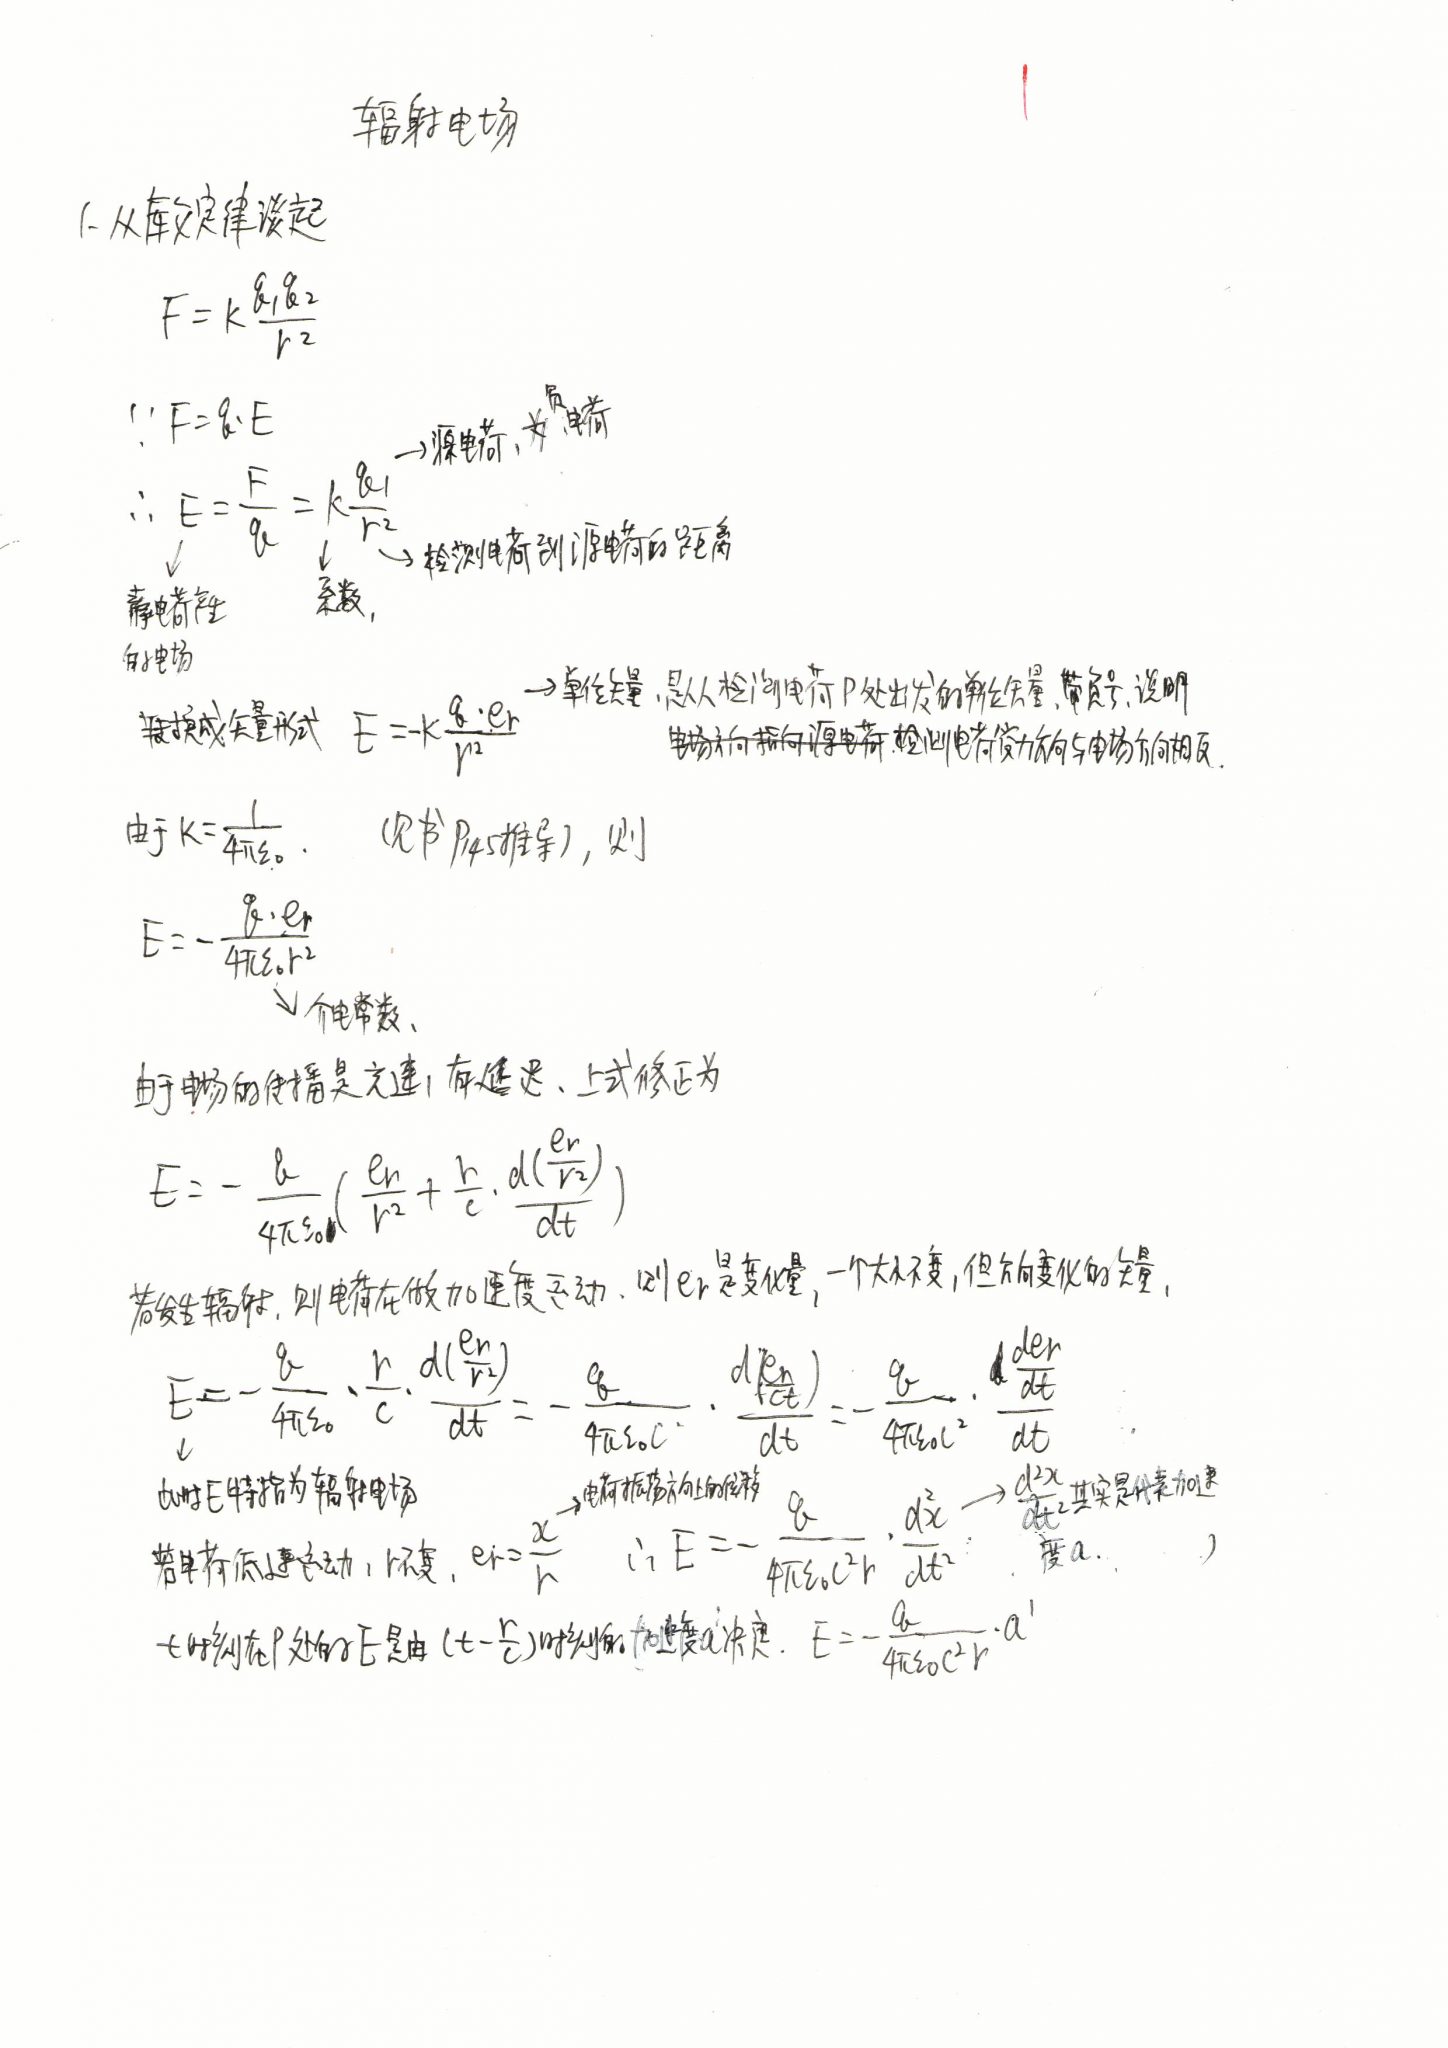 辐射电场
1. 从库仑定律谈起
F = k q₁q₂/r²
∵ F = q·E
→源电荷，为负电荷
∴ E = F/q = k q₁/r²
→检测电荷到源电荷的距离
静电荷产生的电场
系数，
转换成矢量形式 E = -k q·er/r² →单位矢量，是从检测电荷P处出发的单位矢量，带负号，说明
电场方向指向源电荷.检测电荷受力方向与电场方向相反.
由于 k = 1/4πε₀. (见书P145推导), 则
E = - q·er/4πε₀r²
介电常数、
由于电场的传播是光速，有延迟、上式修正为
E = - q/4πε₀ ( er/r² + r/c · d(er/r²)/dt )
若发生辐射，则电荷在做加速度运动．则er是变化量，一个大小不变，但方向变化的矢量，
E = - q/4πε₀ · r/c · d(er/r²)/dt = - q/4πε₀c² · d(er/ct)/dt = - q/4πε₀c² · d(der/dt)/dt
此时E特指为辐射电场
→电荷振荡方向上的位移
→d²x/dt² 其实是代表加速度a.
若电荷低速运动，r不变，er = x/r ∴ E = - q/4πε₀c²r · d²x/dt²
t时刻在P处的E是由(t - r/c)时刻的加速度a'决定. E = - q/4πε₀c²r · a'